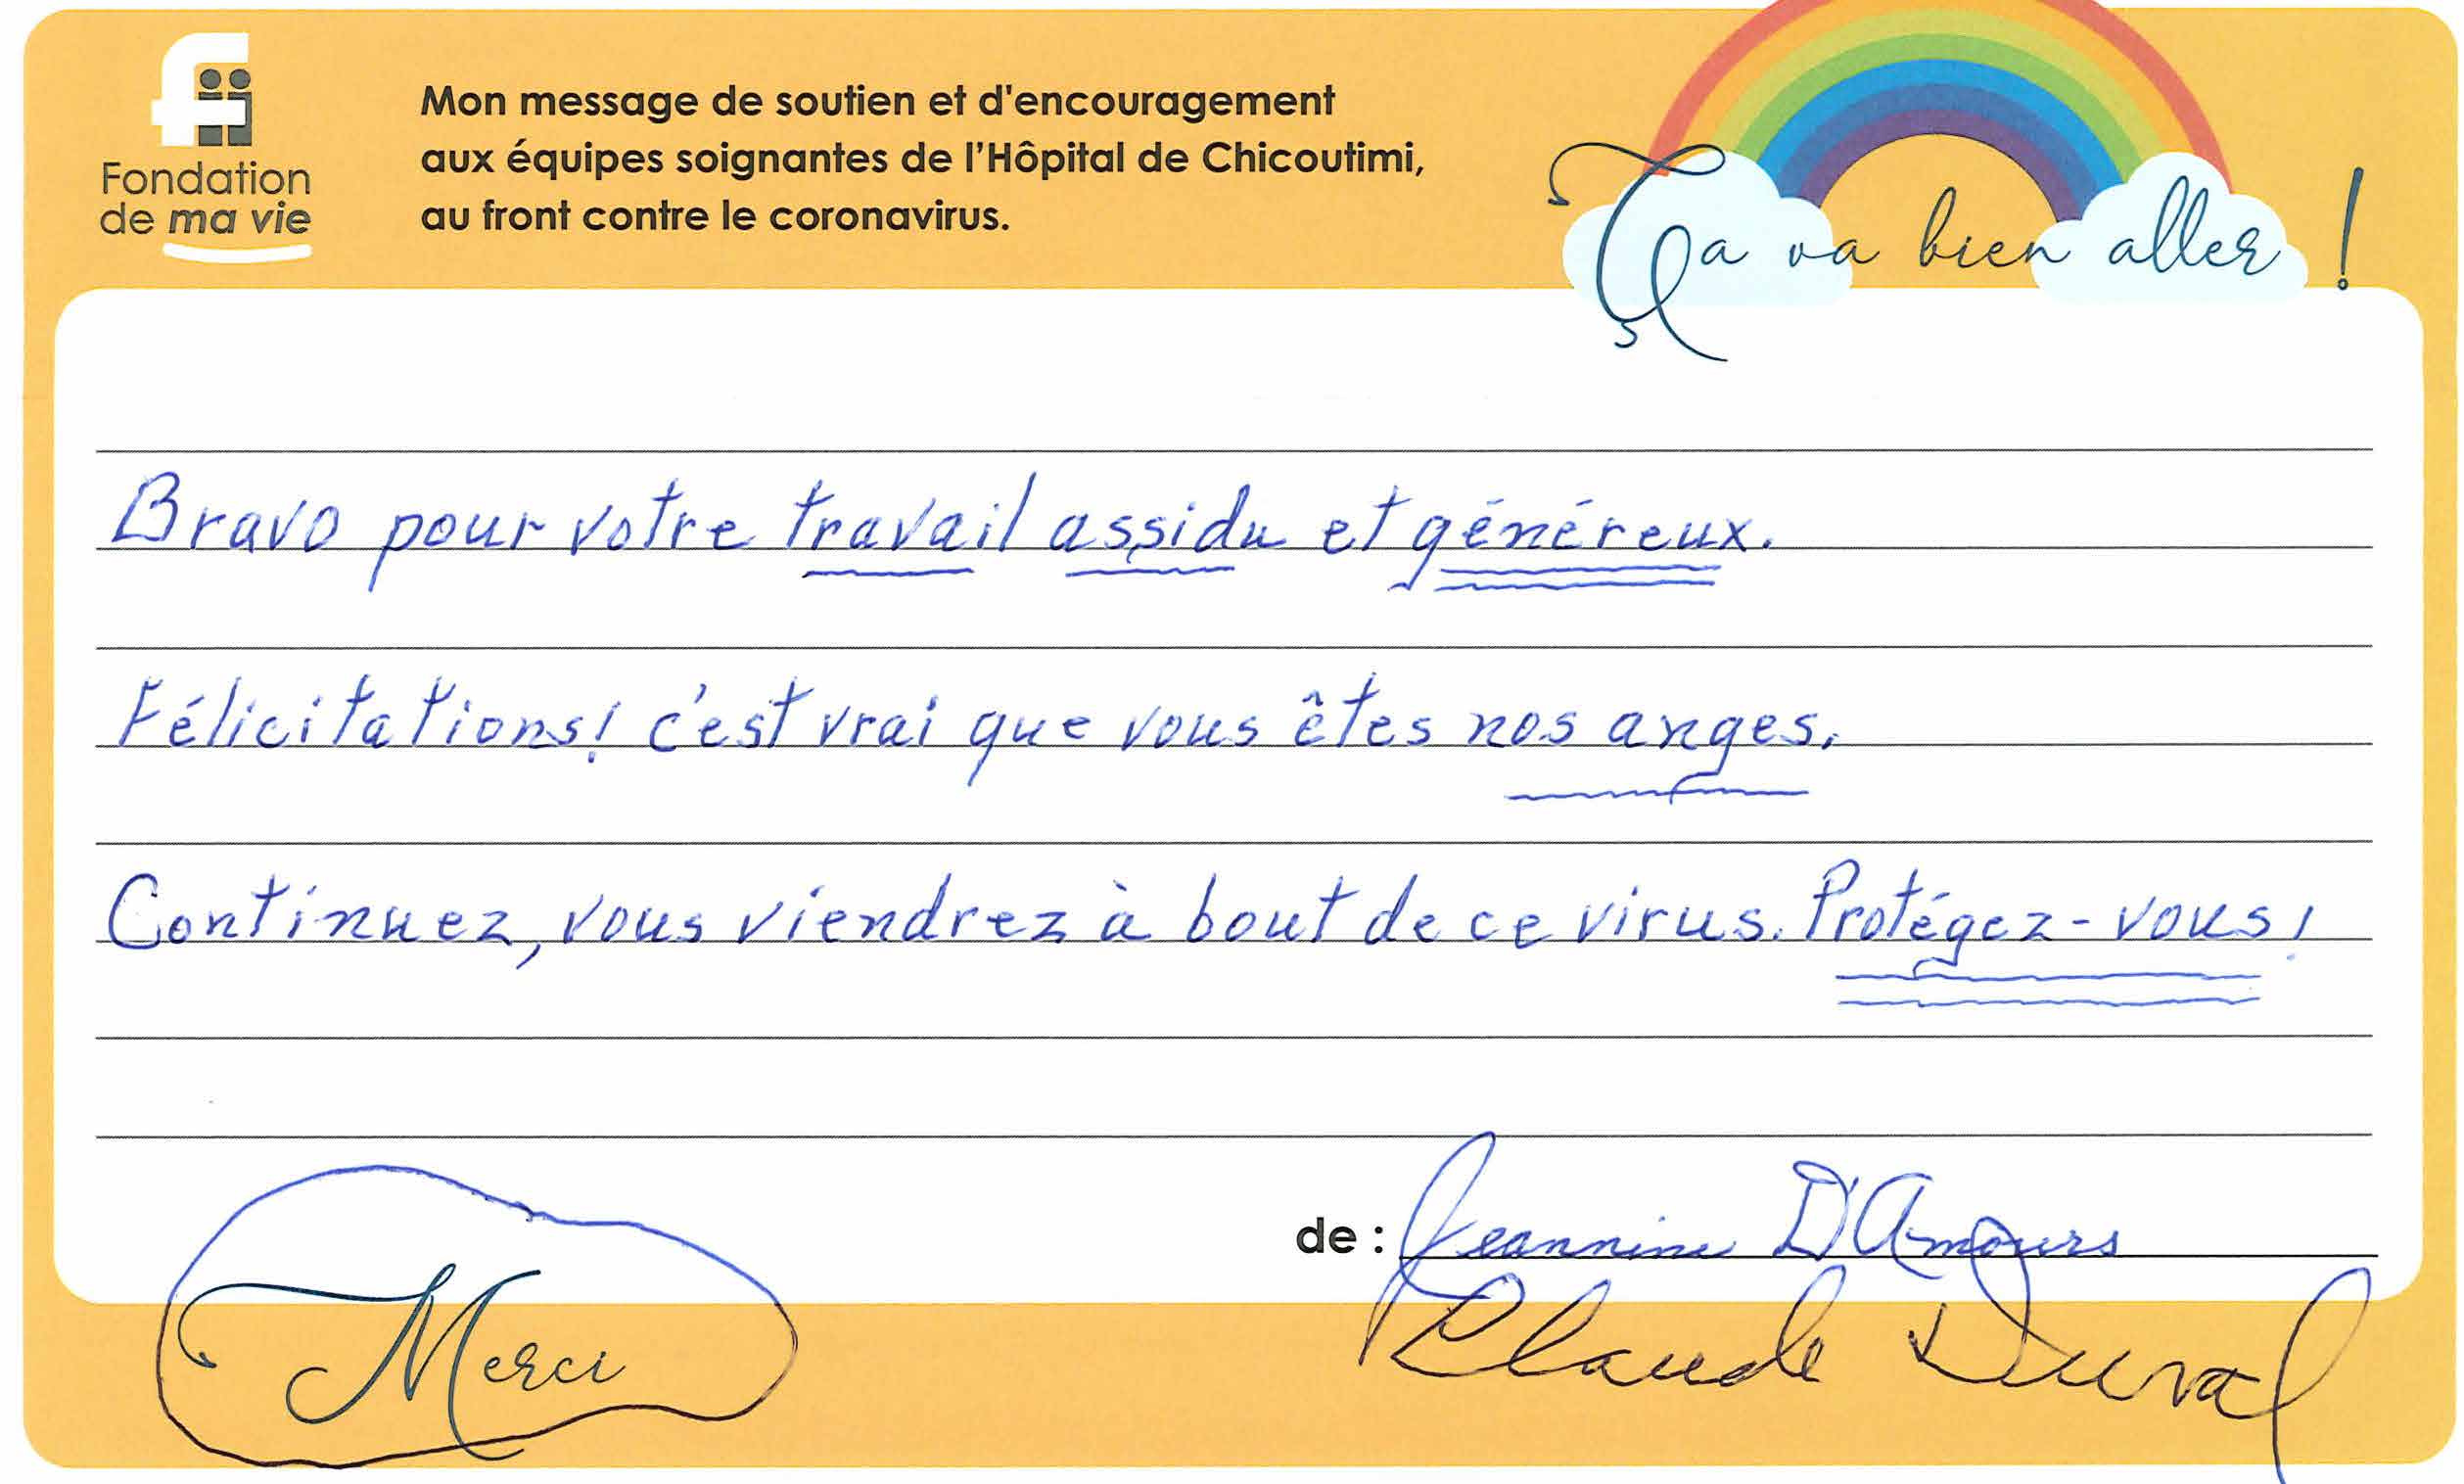 Fondation
de ma vie
Mon message de soutien et d'encouragement
aux équipes soignantes de l'Hôpital de Chicoutimi,
au front contre le coronavirus.
Ça va bien aller !
Bravo pour votre travail assidu et généreux.
Félicitations! c'est vrai que vous êtes nos anges.
Continuez, vous viendrez à bout de ce virus. Protégez-vous!
de : Jeannine D'Amours
Claude Duval
Merci